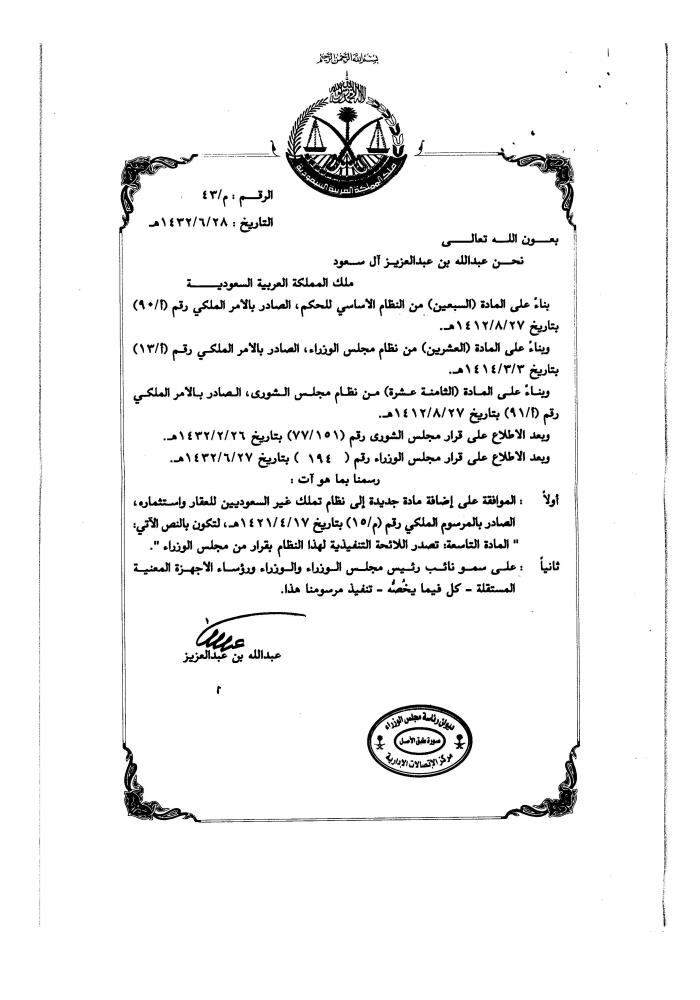 بسم الله الرحمن الرحيم
ملك المملكة العربية السعودية
الرقـــم : م/٤٣
التاريخ : ١٤٣٢/٦/٢٨هـ
بعــون اللــه تعالــى
نحــن عبدالله بن عبدالعزيز آل سعود
ملك المملكة العربية السعوديـــة
بناءً على المادة (السبعين) من النظام الأساسي للحكم، الصادر بالأمر الملكي رقم (أ/٩٠)
بتاريخ ١٤١٢/٨/٢٧هـ.
وبناءً على المادة (العشرين) من نظام مجلس الوزراء، الصادر بالأمر الملكي رقـم (أ/١٣)
بتاريخ ١٤١٤/٣/٣هـ.
وبنـاءً علـى المـادة (الثامنـة عشـرة) مـن نظـام مجلـس الشـورى، الصـادر بـالأمر الملكـي
رقم (أ/٩١) بتاريخ ١٤١٢/٨/٢٧هـ.
وبعد الاطلاع على قرار مجلس الشورى رقم (٧٧/١٥١) بتاريخ ١٤٣٢/٢/٢٦هـ.
وبعد الاطلاع على قرار مجلس الوزراء رقم ( ١٩٤ ) بتاريخ ١٤٣٢/٦/٢٧هـ.
رسمنا بما هو آت :
أولاً : الموافقة على إضافة مادة جديدة إلى نظام تملك غير السعوديين للعقار واستثماره،
الصادر بالمرسوم الملكي رقم (م/١٥) بتاريخ ١٤٢١/٤/١٧هـ، لتكون بالنص الآتي:
" المادة التاسعة: تصدر اللائحة التنفيذية لهذا النظام بقرار من مجلس الوزراء ".
ثانياً : علـى سمـو نائب رئيـس مجلـس الـوزراء والـوزراء ورؤسـاء الأجهـزة المعنيـة
المستقلة – كل فيما يخُصُّه – تنفيذ مرسومنا هذا.
عبدالله بن عبدالعزيز
ديوان رئاسة مجلس الوزراء
صورة طبق الأصل
مركز الإتصالات الإدارية